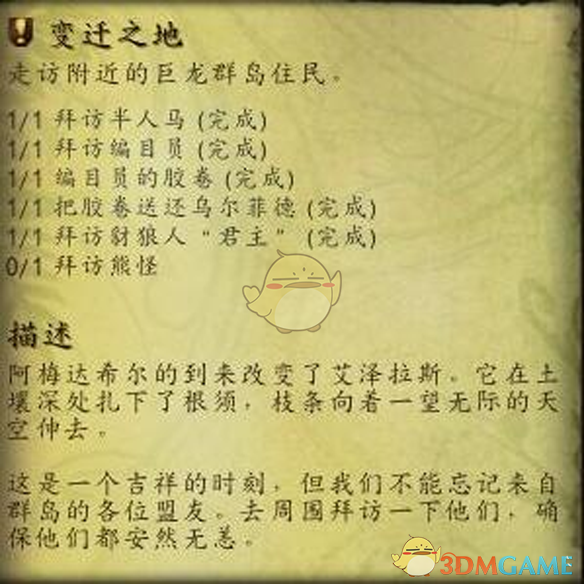 变迁之地
走访附近的巨龙群岛住民。
1/1 拜访半人马 (完成)
1/1 拜访编目员 (完成)
1/1 编目员的胶卷 (完成)
1/1 把胶卷送还乌尔菲德 (完成)
1/1 拜访豺狼人“君主” (完成)
0/1 拜访熊怪
描述
阿梅达希尔的到来改变了艾泽拉斯。它在土
壤深处扎下了根须，枝条向着一望无际的天
空伸去。
这是一个吉祥的时刻，但我们不能忘记来自
群岛的各位盟友。去周围拜访一下他们，确
保他们都安然无恙。
3DMGAME